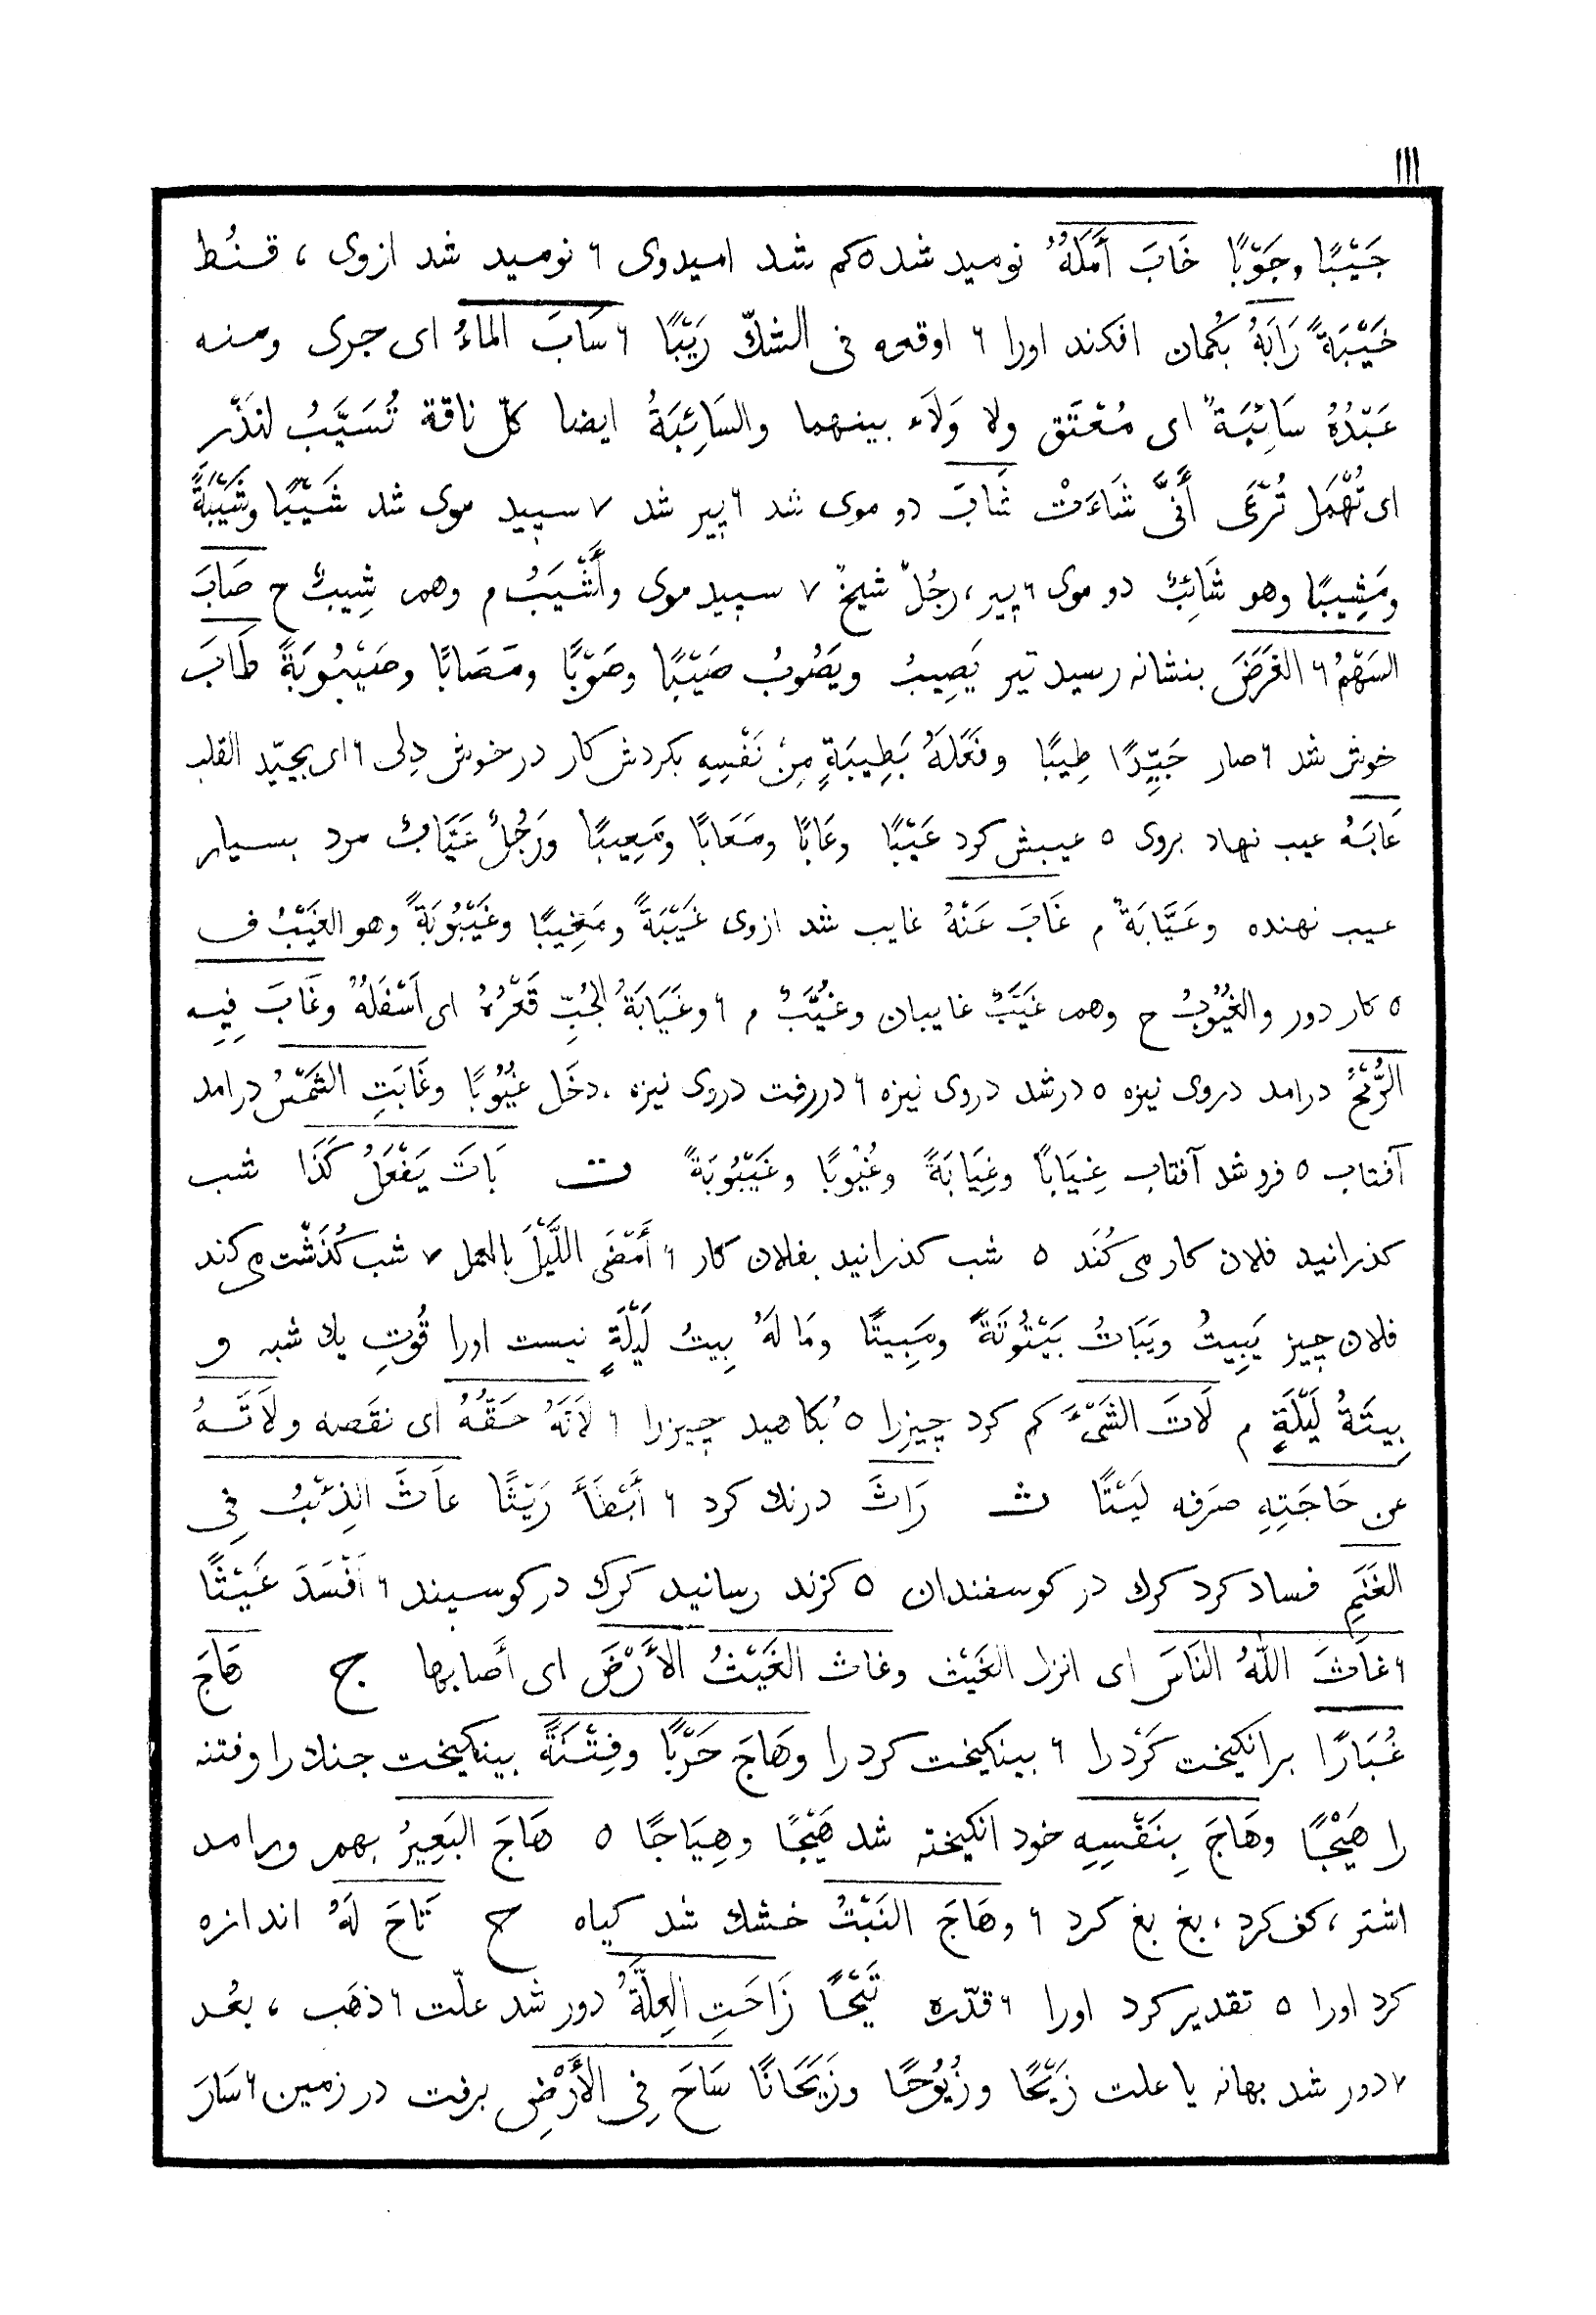 ۱۱۱
جَيْبًا وجَوْبًا خَابَ أَمَلُهُ نوميد شد ۵ كم شد اميد وى ۶ نوميد شد ازوى ، قنُط
خَيْبَةً رَابَهُ بكُمان افكند اورا ۶ اوقعه فى الشكّ رَيْبًا ۶ سَابَ الماءُ اى جرى ومنه
عَبْدُهُ سَائِبَةٌ اى مُعْتَق ولا وَلَاء بينهما والسَائِبَةُ ايضا كلّ ناقة تُسَيَّبُ لنَذْر
اى تُهْمَل تُرْعَى أَنَّى شَاءَتْ شَابَ دو موى شد ۶ پير شد ۷ سپيد موى شد شَيْبًا وشَيْبَةً
ومَشِيبًا وهو شَائِبٌ دو موى ۶ پير ، رجُلٌ شيخٌ ۷ سپيد موى وأَشْيَبُ م وهم شِيبٌ ح صَابَ
السَهْمُ ۶ الغَرَضَ بنشانه رسيد تير يَصِيبُ ويَصُوبُ صَيْبًا وصَوْبًا ومَصَابًا وصَيْبُوبَةً طَابَ
خوش شد ۶ صار جَيِّدًا طِيبًا وفَعَلَهُ بَطِيبَةٍ مِنْ نَفْسِهِ بكردش كار در خوش دِلى ۶ اى بجيّد القلب
عَابَهُ عيب نهاد بروى ۵ عيبش كرد عَيْبًا وعَابًا ومَعَابًا ومَعِيبًا ورَجُلٌ عَيَّابٌ مرد بسيار
عيب نهنده وعَيَّابَةٌ م غَابَ عَنْهُ غايب شد ازوى غَيْبَةً ومَغِيبًا وغَيْبُوبَةً وهو الغَيْبُ ف
۵ كار دور والغُيُوبُ ح وهم غَيَبٌ غايبان وغُيَّبٌ م ۶ وغَيَابَةُ الجُبِّ قَعْرُهُ اى اَسْفَلُهُ وغَابَ فِيِه
الرُّمْحُ درامد دروى نيزه ۵ درشد دروى نيزه ۶ دررفت دروى نيزه ، دخَل غُيُوبًا وغَابَتِ الشَمْسُ درامد
آفتاب ۵ فرو شد آفتاب غِيَابًا وغِيَابَةً وغُيُوبًا وغَيْبُوبَةً ت بَاتَ يَفْعَلُ كَذَا شب
كذرانيد فلان كار مى كُنَد ۵ شب كذرانيد بفلان كار ۶ أَمْضَى اللَّيْلَ بالعمل ۷ شب كُذَشْت مى كند
فلان چيز يَبِيتُ ويَبَاتُ بَيْتُوتَةً ومَبِيتًا ومَا لَهُ بِيتُ لَيْلَةٍ نيست اورا قُوتِ يك شبه و
بِيتَةُ لَيْلَةٍ م لَاتَ الشَىْءَ كم كرد چيزرا ۵ بُكاهيد چيزرا ۶ لَاتَهُ حَقَّهُ اى نقَصه ولَاتَهُ
عن حَاجَتِهِ صرَفه لَيْتًا ث رَاثَ درنك كرد ۶ أَبْطَأَ رَيْثًا عاَثَ الذِئْبُ فِى
الغَنَمِ فساد كرد كرك در كوسفندان ۵ كزند رسانيد كرك در كوسپند ۶ أَفْسَدَ عَيْثًا
۶ غاَثَ اللّٰهُ الناَسَ اى انزل الغَيْث وغاث الغَيْثُ الأَرْضَ اى أَصابها ج هَاجَ
غُبَارًا برانكيخت كَرْد را ۶ بينكيخت كرد را وهَاجَ حَرْبًا وفِتْنَةً بينكيخت جنك را وفتنه
را هَيْجًا وهَاجَ بِنَفْسِهِ خود انكيخته شد هَيْجًا وهِيَاجًا ۵ هَاجَ البَعِيرُ بهم ورامد
اشتر ، كف كرد ، بغ بغ كرد ۶ وهَاجَ النَبْتُ خشك شد كياه ح تَاحَ لَهُ اندازه
كرد اورا ۵ تقدير كرد اورا ۶ قدّره تَيْحًا زَاحَتِ العِلَّةُ دور شد علّت ۶ ذهَب ، بعُد
۷ دور شد بهانه يا علت زَيْحًا وزُيُوحًا وزَيَحَانًا سَاحَ فِى الأَرْضِ برفت در زمين ۶ سَارَ